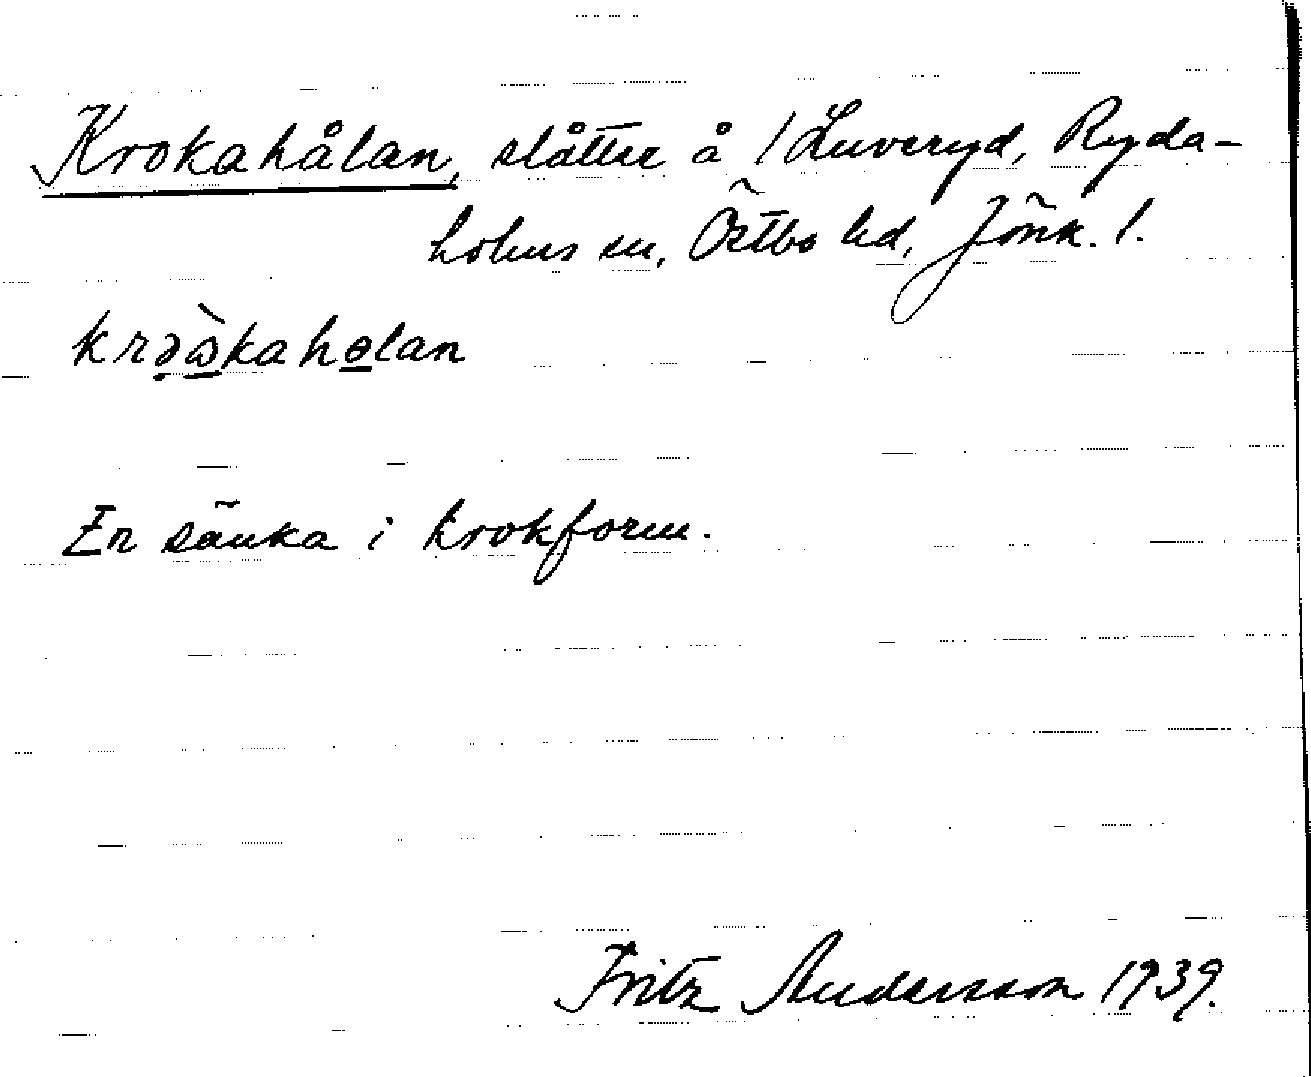 Krokahålan, slåtter å /Luveryd, Ryda-
holms sn, Östbo hd, Jönk. l.
krəὼkahɵlan
En sänka i krokform.
Fritz Andersson 1939.